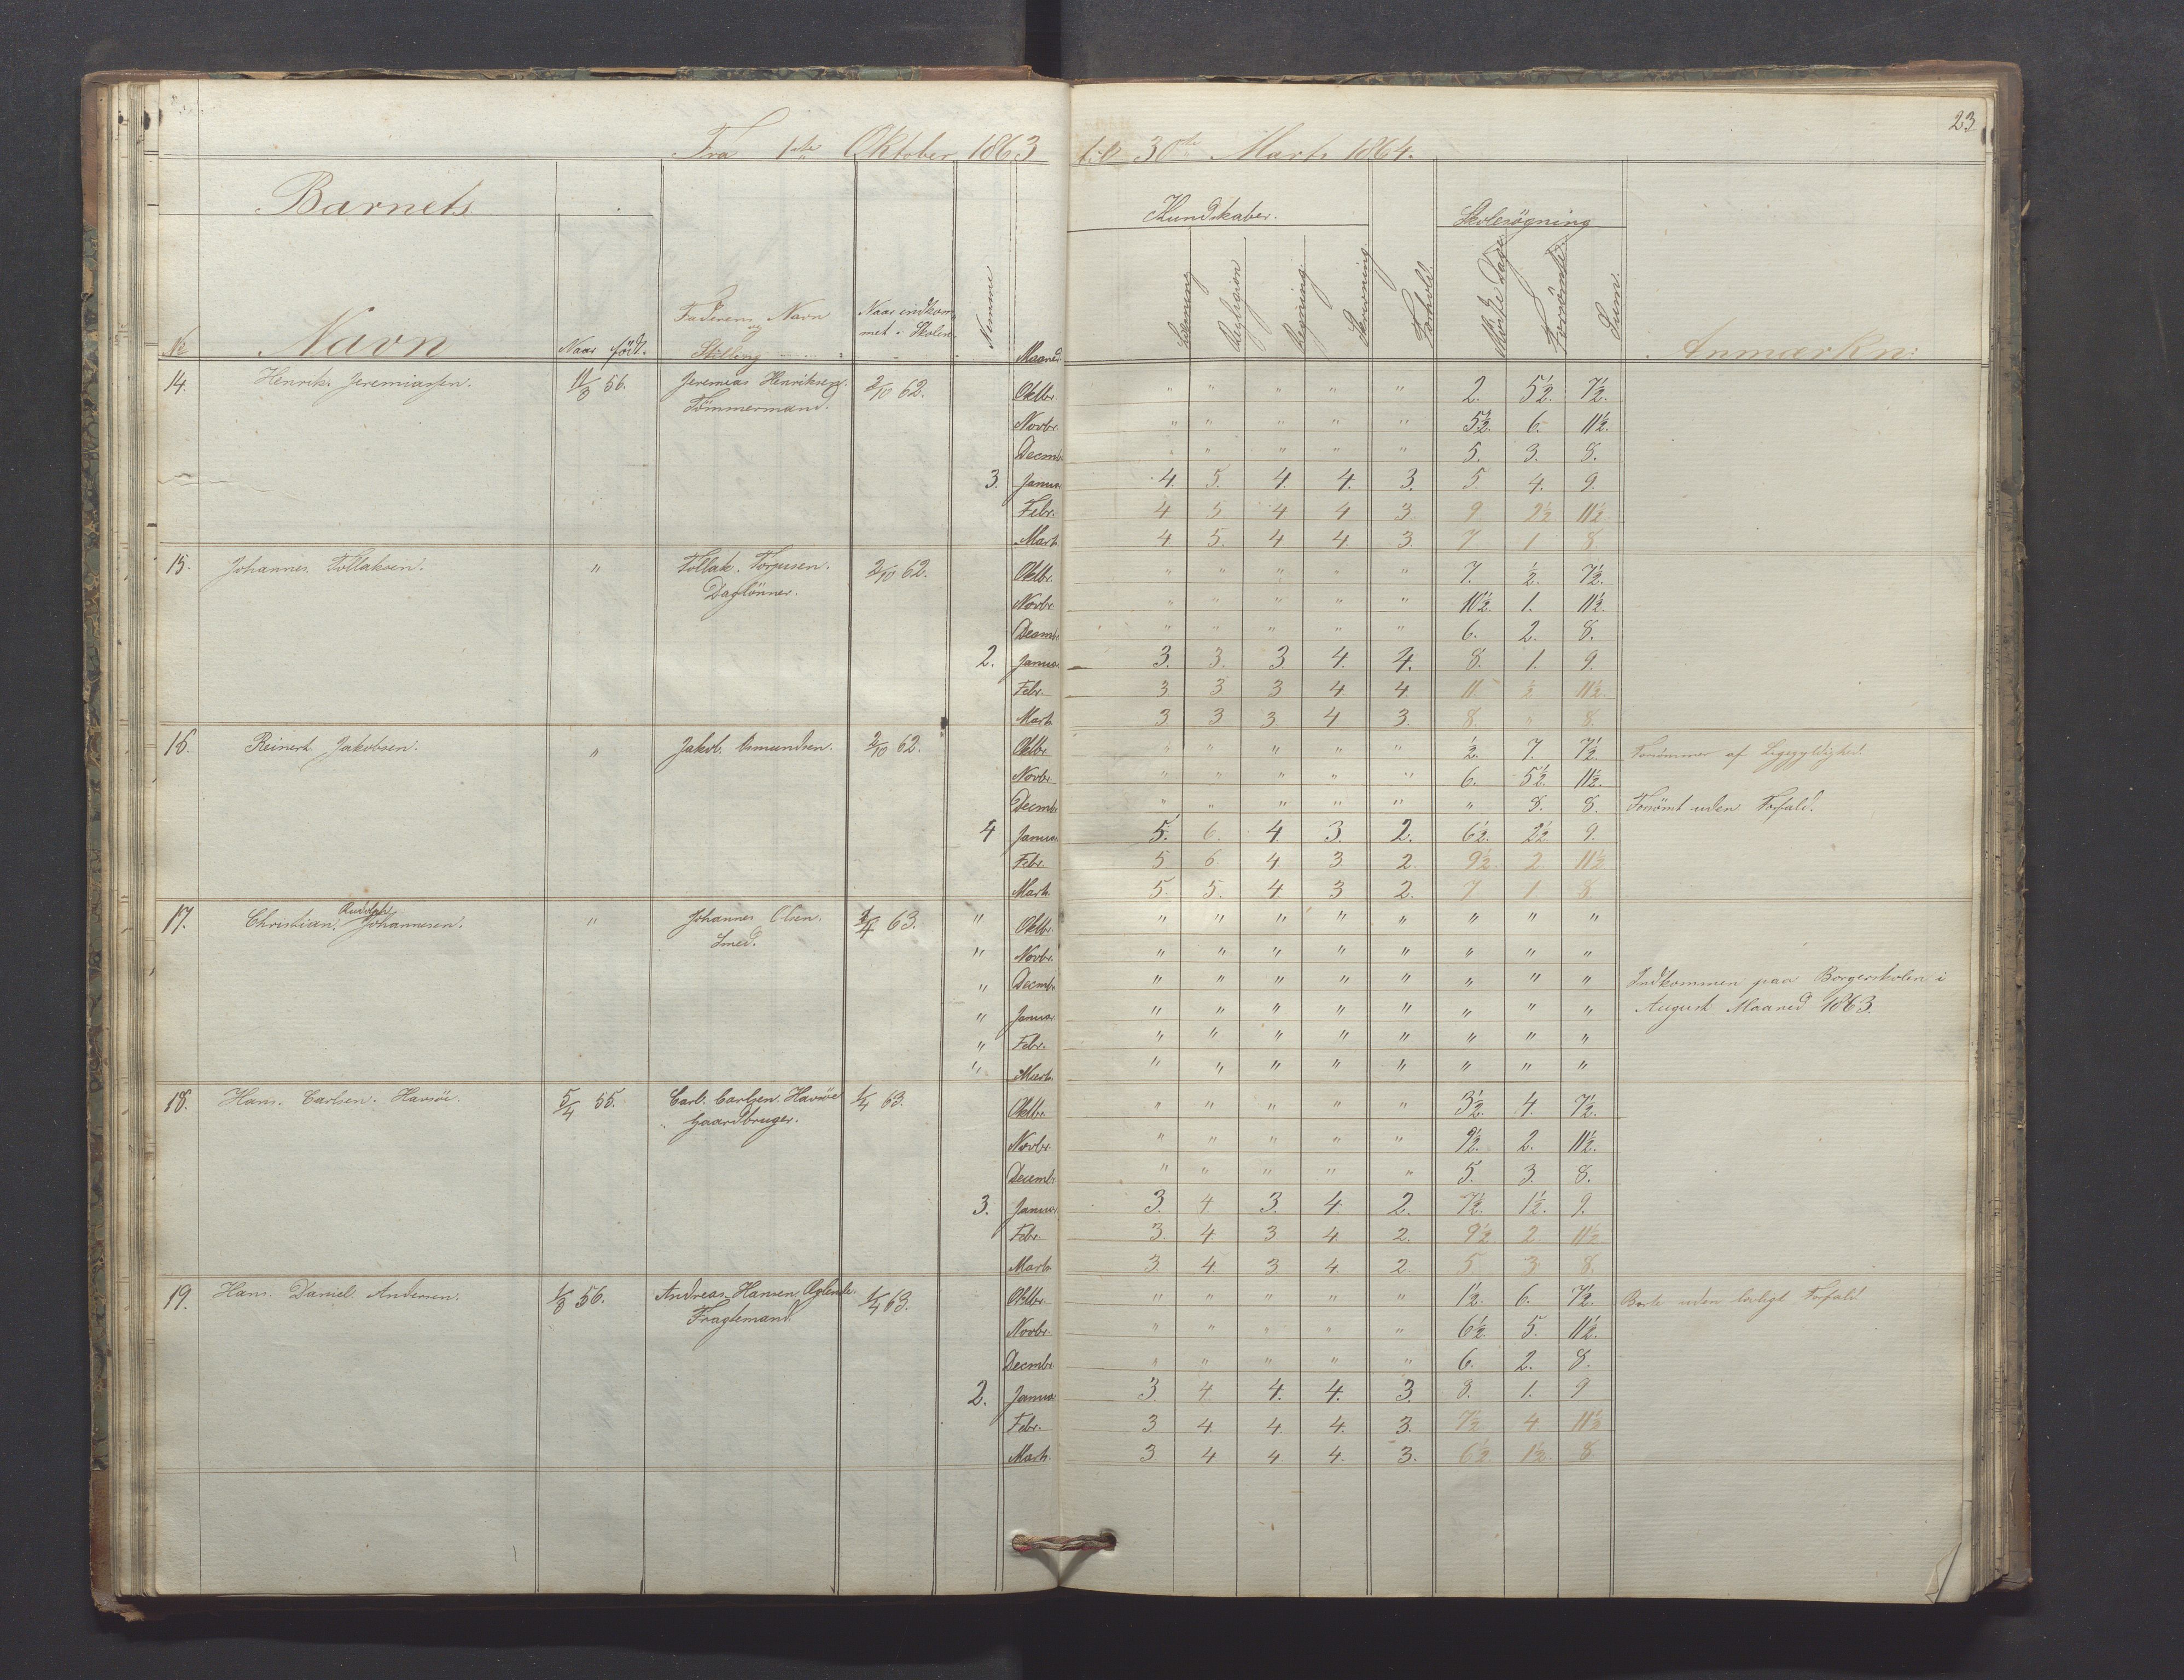 23
Fra 1ste Oktober 1863 til 30te Marts 1864.
Barnets
Kundskaber. Skolesögning
No Navn Naar födt. Faderens Navn og Stilling Naar indkommet i Skolen Nemme Maaned Læsning Religion Regning Skrivning Forhold Mödte Dage Forsömte Sum. Anmærkn:
14. Henrik Jeremiassen. 11/8 56. Jeremias Henriksen. 2/10 62. Oktbr. " " " " " 2. 5½ 7½.
Tömmermand.
Novbr. " " " " " 5½. 6. 11½.
Decmb. " " " " " 5. 3. 8.
3. Januar 4. 5. 4. 4. 3. 5. 4. 9.
Febr. 4 5 4 4 3. 9 2½ 11½
Marts. 4. 5. 4 4. 3. 7 1 8.
15. Johannes Tollaksen. " Tollak. Torjussen. 2/10 62. Oktbr. " " " " " 7. ½. 7½.
Daglönner.
Novbr. " " " " " 10½. 1. 11½
Decmb. " " " " " 6. 2. 8.
2. Januar 3. 3. 3. 4. 4. 8. 1. 9.
Febr. 3 3 3 4 4 11 ½ 11½
Marts. 3. 3 3 4 3. 8. " 8.
16. Reinert Jakobsen. " Jakob. Asmundsen. 2/10 62. Oktbr. " " " " " ½. 7. 7½ Forsömmer af Ligegyldighed.
Novbr. " " " " " 6. 5½. 11½.
Decmb. " " " " " " 8. 8. Forsömt uden Forfald.
4 Januar 5. 6. 4. 3. 2. 6½. 2½. 9.
Febr. 5 6. 4 3. 2 9½ 2 11½
Marts. 5. 5. 4 3 2. 7 1 8
17. Christian. Rudolph Johannesen. " Johannes Olsen. 1/4 63. " Oktbr. " " " " " " " "
Smed.
" Novbr. " " " " " " " "
" Decmb. " " " " " " " " Indkommen paa Borgerskolen i
" Januar " " " " " " " " August Maaned 1863.
" Febr. " " " " " " " "
" Marts. " " " " " " " "
18. Hans. Carlsen. Havsöe. 5/4 55. Carl. Carlsen. Havsöe 1/4 63. Oktbr. " " " " " 3½. 4. 7½.
Gaardbruger.
Novbr. " " " " " 9½. 2. 11½.
Decemb. " " " " " 5. 3. 8.
3. Januar 3. 4 3. 4 2. 7½. 1½. 9.
Febr. 3. 4 3 4 2. 9½ 2 11½
Marts. 3 4. 3 4. 2. 5 3 8.
19. Hans. Daniel Andersen. 1/8 56. Andreas Hansen 1/4 63. Oktbr. " " " " " 1½. 6. 7½. Borte uden lovligt Forfald
Fragtemand.
Novbr. " " " " " 6½ 5. 11½.
Decmbr " " " " " 6. 2. 8.
2. Januar 3 4 4. 4. 3. 8. 1. 9
Febr. 3 4. 4 4. 3. 7½ 4 11½
Marts. 3 4 4 4. 3. 6½ 1½ 8